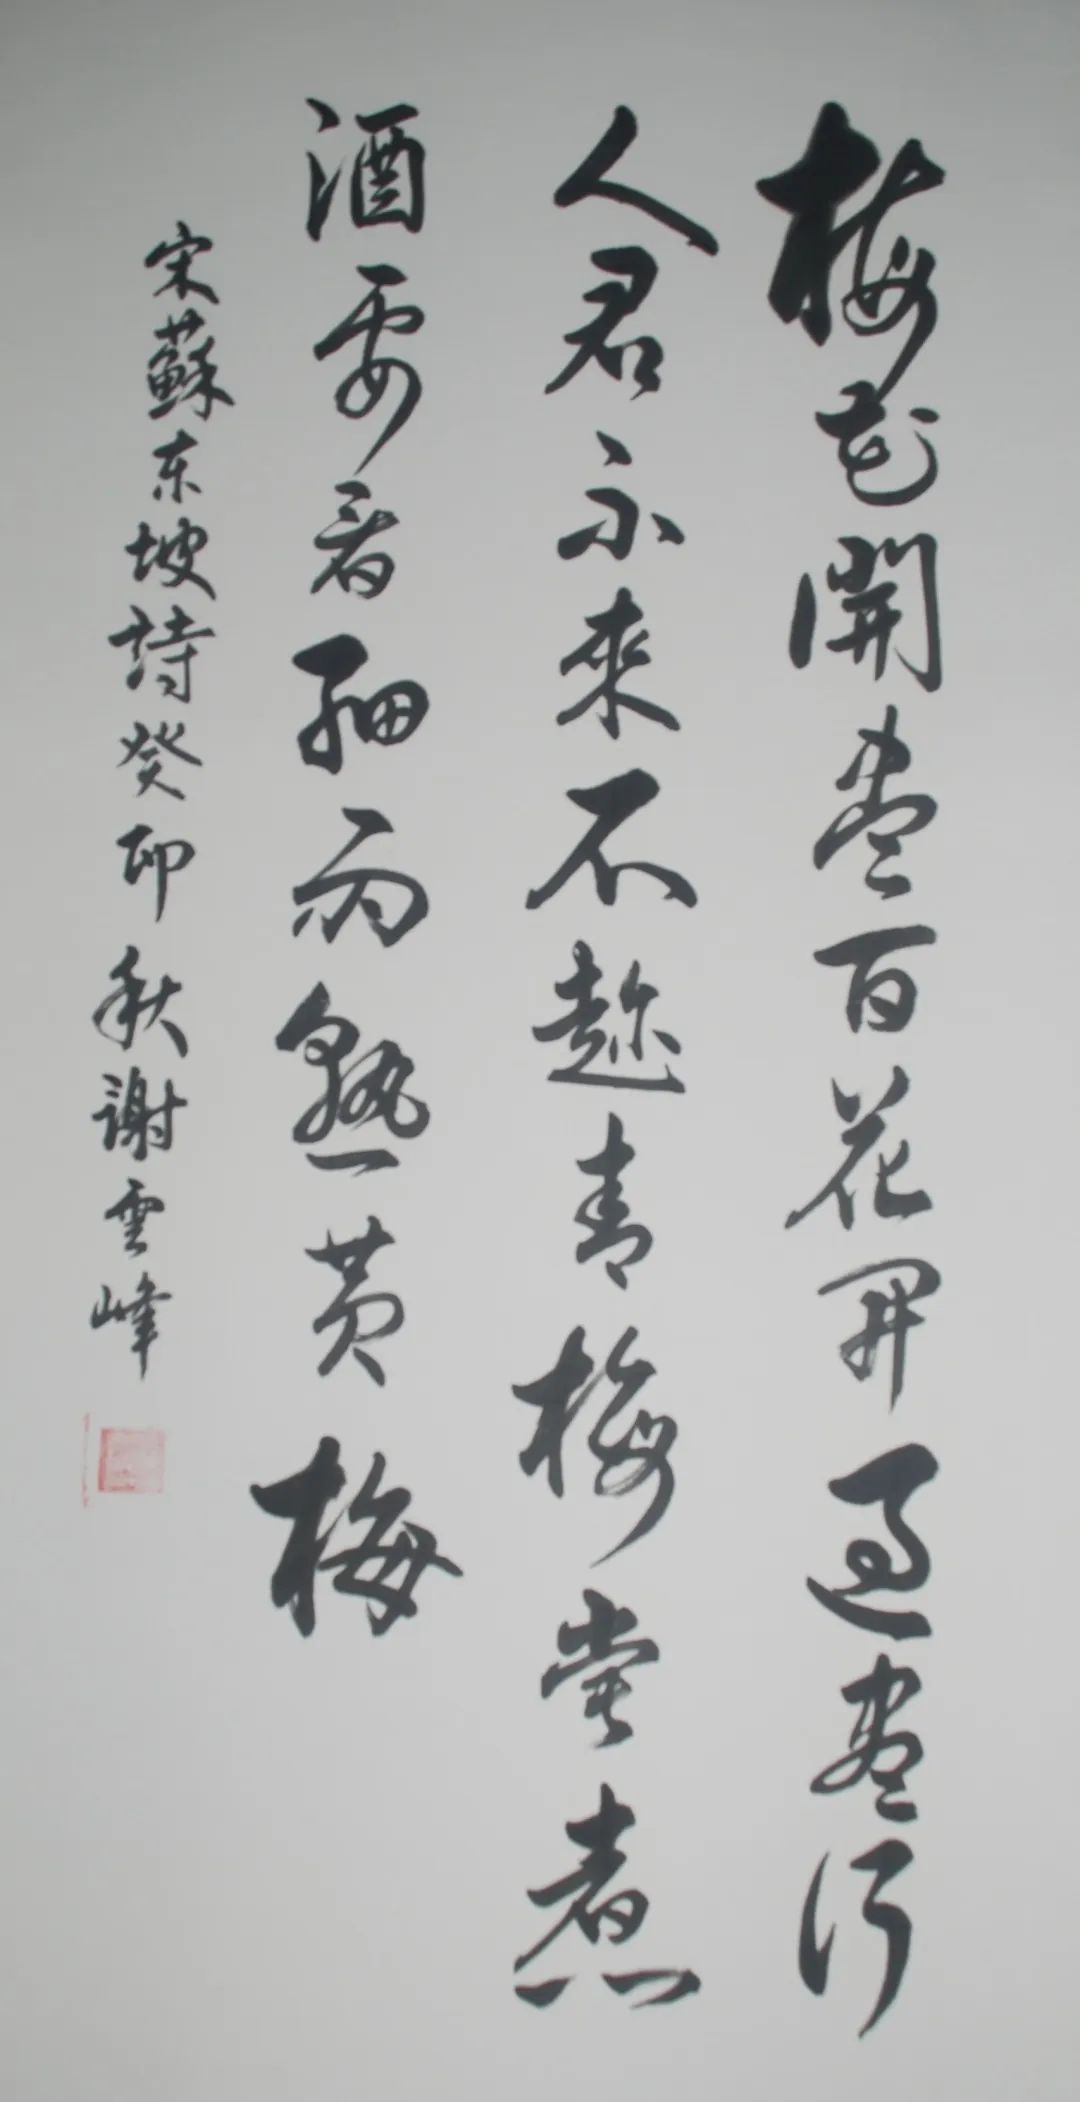 梅花開盡百花開過盡行
人君不來不趁青梅嘗煮
酒要看細雨熟黄梅
宋蘇东坡詩癸卯秋謝雲峰